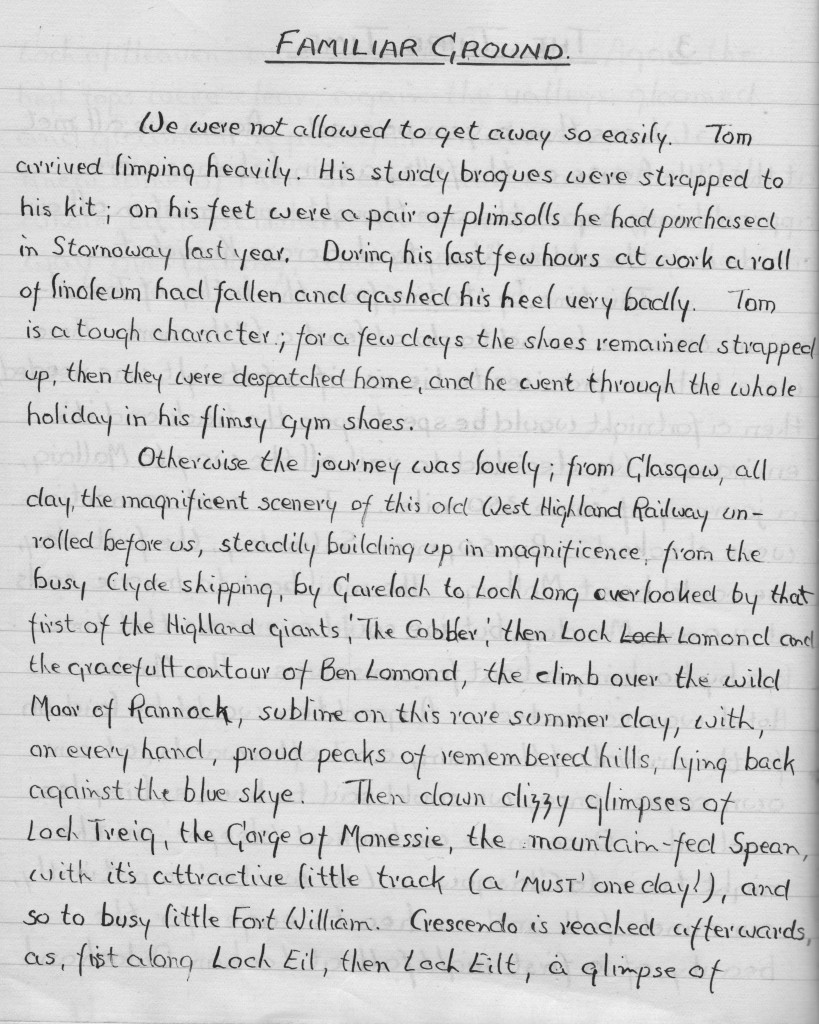 FAMILIAR GROUND.
We were not allowed to get away so easily. Tom
arrived limping heavily. His sturdy brogues were strapped to
his kit; on his feet were a pair of plimsolls he had purchased
in Stornoway last year. During his last few hours at work a roll
of linoleum had fallen and gashed his heel very badly. Tom
is a tough character; for a few days the shoes remained strapped
up, then they were despatched home, and he went through the whole
holiday in his flimsy gym shoes.
Otherwise the journey was lovely; from Glasgow, all
day, the magnificent scenery of this old West Highland Railway un-
rolled before us, steadily building up in magnificence, from the
busy Clyde shipping, by Gareloch to Loch Long overlooked by that
first of the Highland giants 'The Cobbler', then Loch Loch Lomond and
the gracefull contour of Ben Lomond, the climb over the wild
Moor of Rannock, subline on this rare summer day, with,
on every hand, proud peaks of remembered hills, lying back
against the blue skye. Then down dizzy glimpses of
Loch Treig, the Gorge of Monessie, the mountain-fed Spean,
with it's attractive little track (a 'MUST' one day!), and
so to busy little Fort William. Crescendo is reached afterwards,
as, fist along Loch Eil, then Loch Eilt, a glimpse of